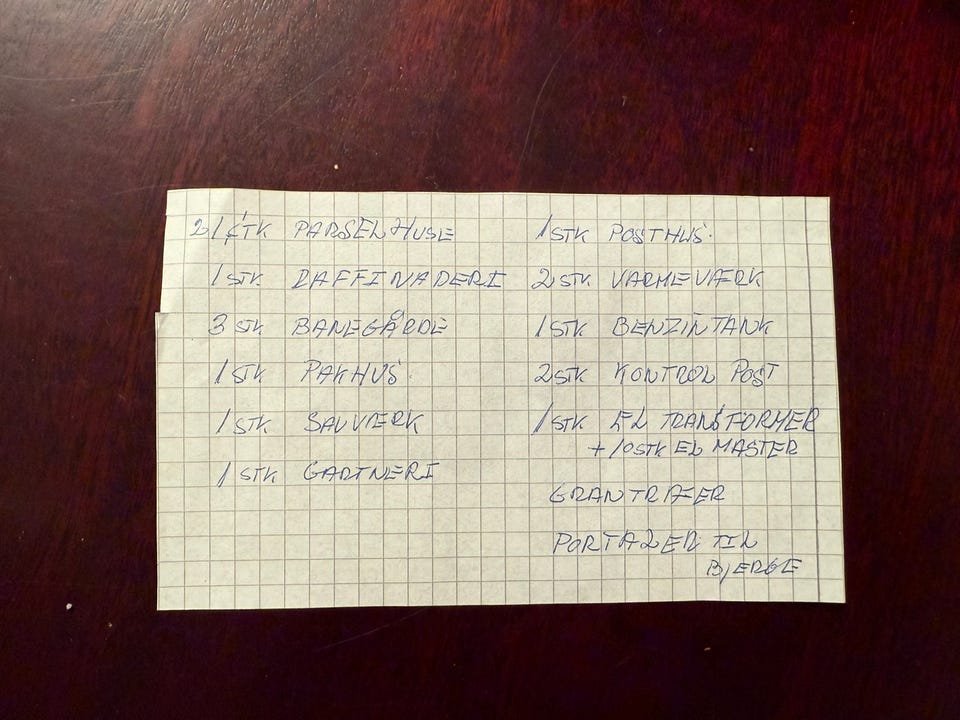 21 STK PARSELHUSE
1 STK RAFFINADERI
3 STK BANEGÅRDE
1 STK PAKHUS
1 STK SAVVÆRK
1 STK GARTNERI
1 STK POSTHUS
2 STK VARMEVÆRK
1 STK BENZINTANK
2 STK KONTROL POST
1 STK EL TRANSFORMER
+ 10 STK EL MASTER
GRANTRÆER
PORTALER TIL
BJERGE